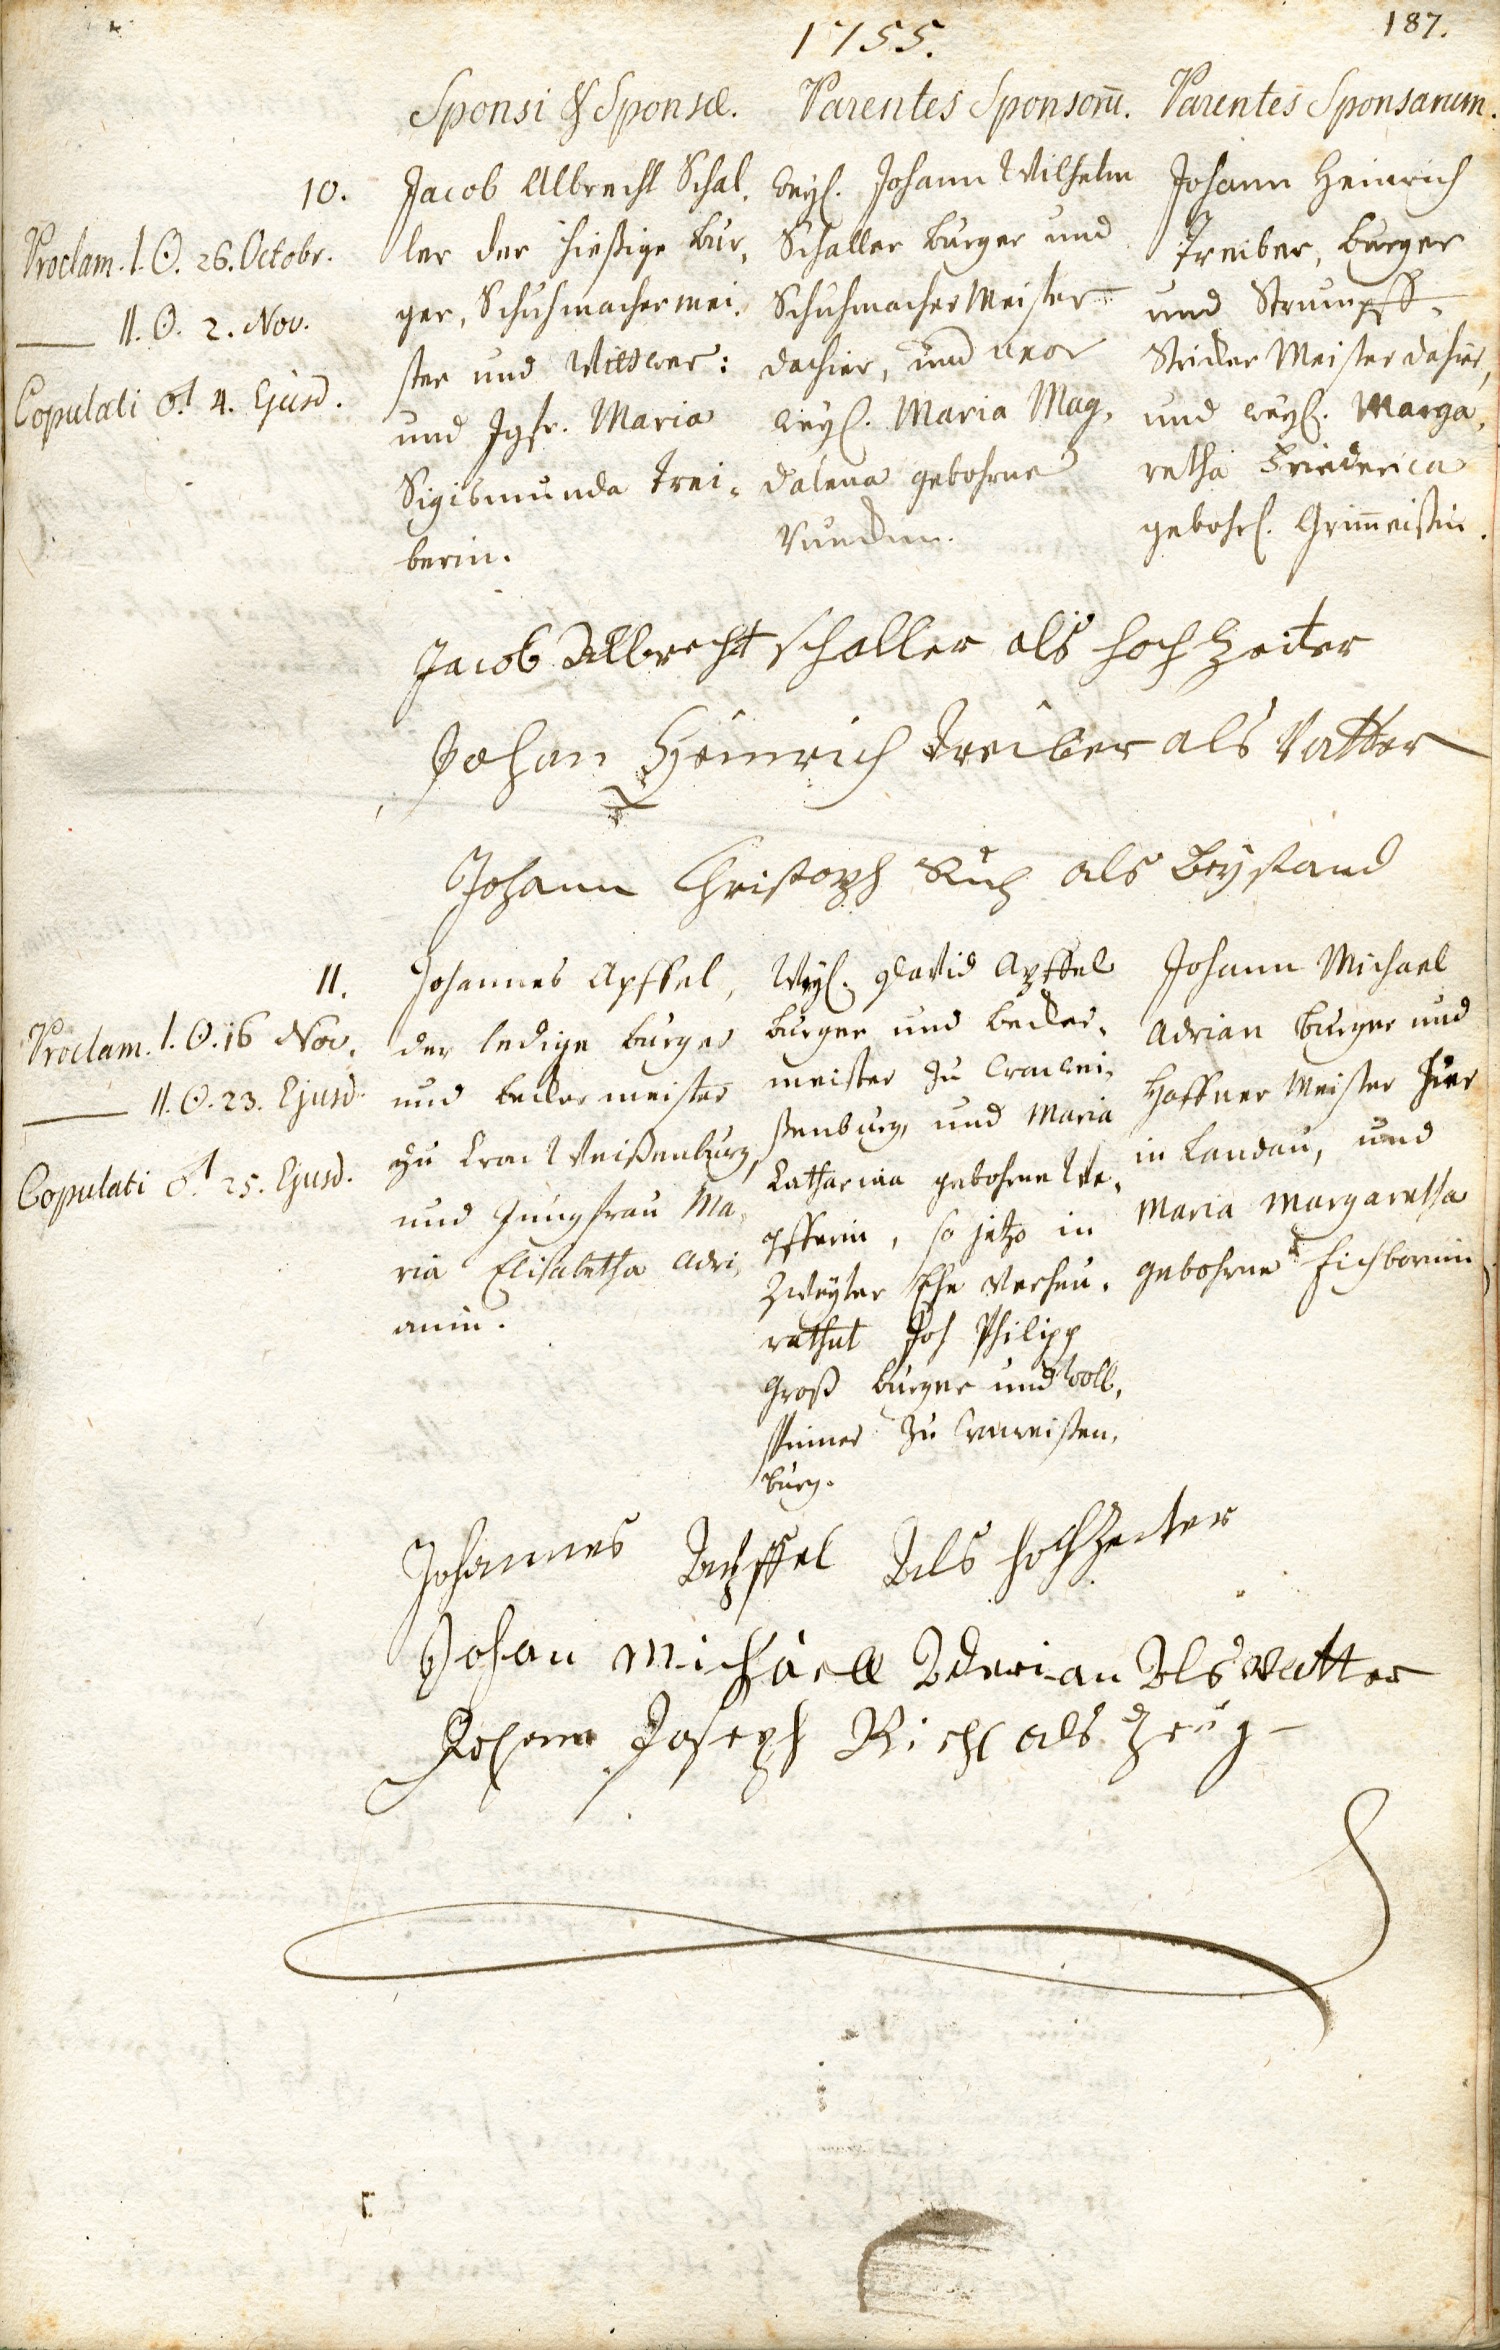 1755.
187.
Sponsi & Sponsæ.
Parentes Sponsorū.
Parentes Sponsarum.
10.
Proclam. I. ☉. 26. Octobr.
II. ☉. 2. Nov.
Copulati ♂ 4. Ejusd.
Jacob Albrecht Schal,
ler der hießige Bur,
ger, Schuhmachermei,
ster und Wittwer:
und Jgfr. Maria
Sigismunda Trei,
berin.
weyl. Johann Wilhelm
Schaller Burger und
Schuhmacher Meister
dahier, und
weyl. Maria Mag,
dalena gebohrne
Johann Heinrich
Treiber, Burger
und Strumpff,
Stricker Meister dahier,
und weyl. Marga,
retha Friederica
gebohrl. Grim̄eißin.
Jacob Albrecht schaller als hochzeiter
Johan Heinrich Treiber als Vatter
Johann Christoph als Beystand
11.
Proclam. I. ☉. 16 Nov.
II. ☉. 23. Ejusd.
Copulati ♂ 25. Ejusd.
Johannes Apffel,
der ledige Burger
und Beckermeister
zu Cron Weißenburg,
und Jungfrau Ma,
ria Elisabetha Adri,
anin.
Weyl. David Apffel
Burger und Becker,
meister zu Cronwei,
ßenburg, und Maria
Catharina gebohrne We,
pfferin, so jetzo in
Zweyter Ehe verheu,
rathet Joh Philipp
Groß Burger und Woll,
spinner zu Cronweißen,
burg.
Johann Michael
Adrian Burger und
Haffner Meister hier
in Landau, und
Maria Margaretha
gebohrne Eichbornin
Johannes Apffel Als hochzeiter
Johan Michaell Aderian Als Vatter
Johann Joseph Richl als Zeug